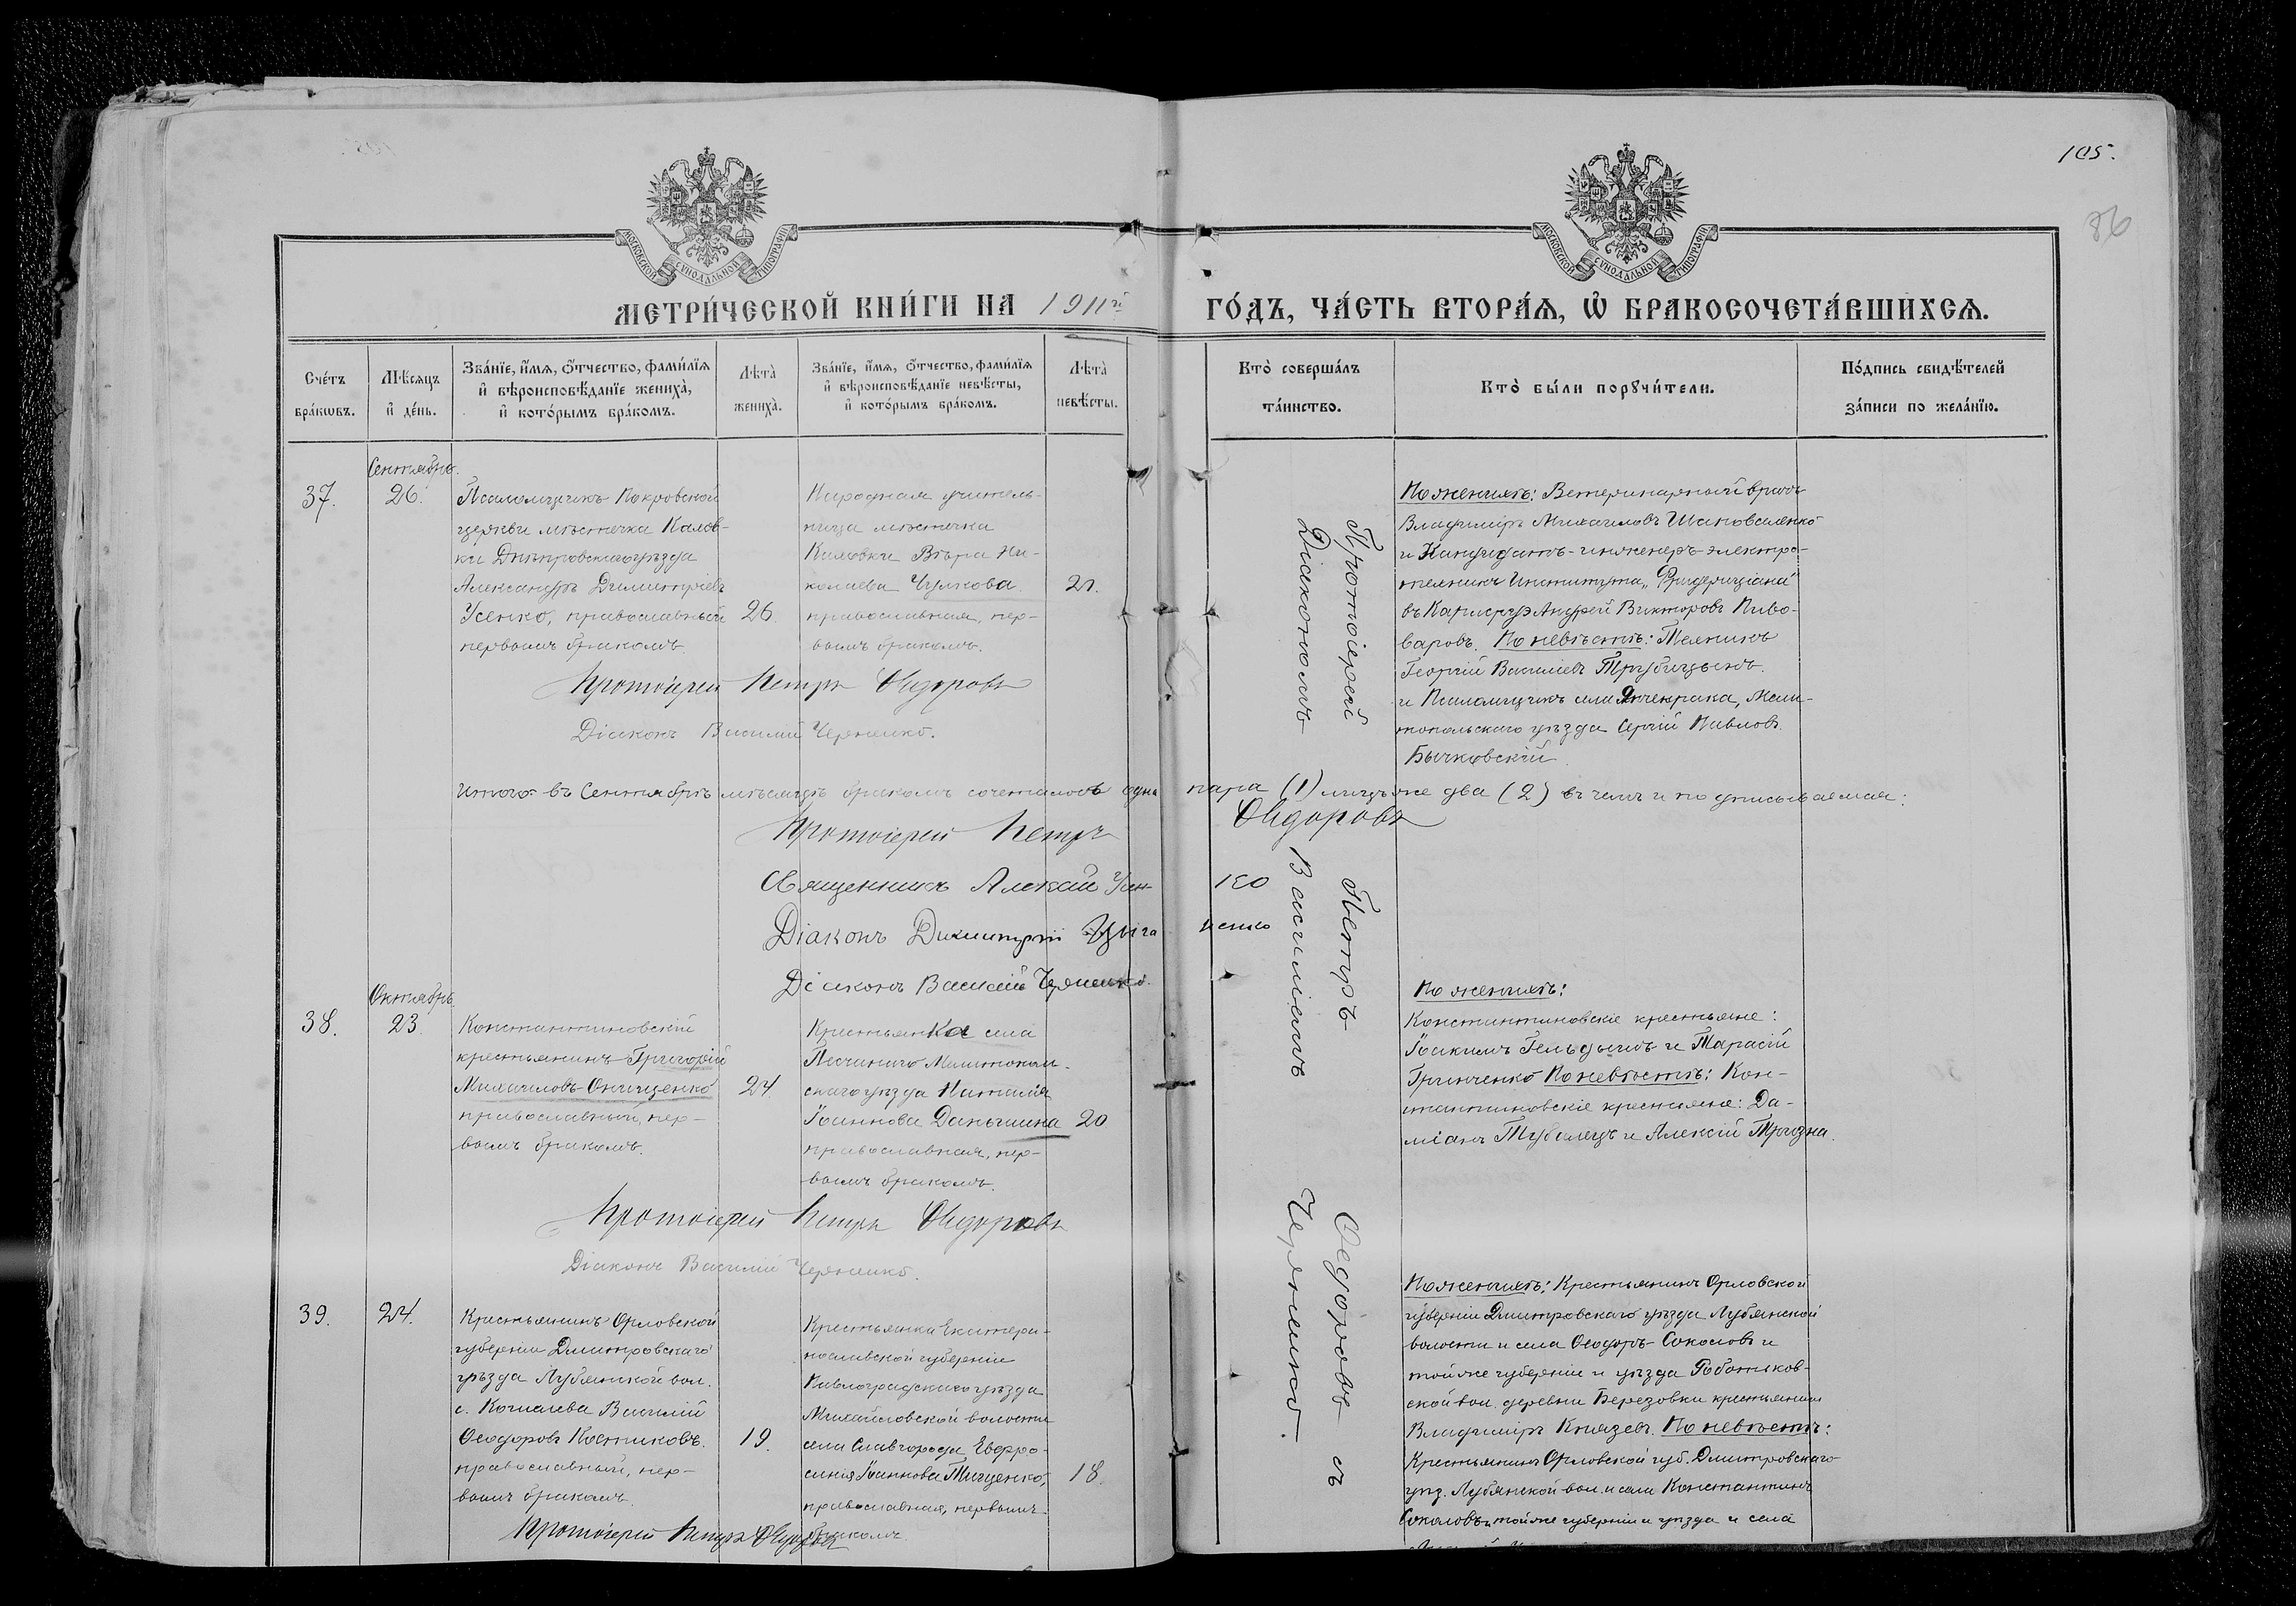 105.
86
МОСКОВСКОЙ СѴНОДАЛЬНОЙ ТИПОГРАФІИ
МОСКОВСКОЙ СѴНОДАЛЬНОЙ ТИПОГРАФІИ
МЕТРИ́ЧЕСКОЙ КНИ́ГИ НА 1911й
ГО́ДЪ, ЧА́СТЬ ВТОРА́Ѧ, Ѡ БРАКОСОЧЕТА́ВШИХСѦ.
Сче́тъ бра́кѡвъ.
Мѣ́сѧцъ и де́нь.
Зва́нїе, и́мѧ, о́тчество, фами́лїѧ и вѣроисповѣ́данїе жениха̀, и кото́рымъ бра́комъ.
Лѣта̀ жениха̀.
Зва́нїе, и́мѧ, о́тчество, фами́лїѧ и вѣроисповѣ́данїе невѣ́сты, и кото́рымъ бра́комъ.
Лѣта̀ невѣ́сты.
Кто̀ соверша́лъ та́инство.
Кто̀ бы́ли порꙋчи́тели.
По́дпись свидѣ́телей за́писи по жела́нїю.
Сентябрь.
37.
26.
Псаломщикъ Покровской
церкви мѣстечка Калов-
ки Днѣпровскаго уѣзда
Александръ Димитріевъ
Усенко, православный
первымъ бракомъ.
26.
Народная учитель-
ница мѣстечка
Каловки Вѣра Ни-
колаева Чулкова
православная, пер-
вымъ бракомъ.
21.
Протоіерей Петръ Ѳедоровъ
Діаконъ Василій Черненко.
Протоіерей Петръ Ѳедоровъ съ
Діакономъ Василіемъ Черненко.
По женихѣ: Ветеринарный врачъ
Владиміръ Михаиловъ Шаповаленко
и Кандидатъ-инженеръ-электро-
техникъ Института „Фридериціана"
въ Карлсруэ Андрей Викторовъ Пиво-
варовъ. По невѣстѣ: Техникъ
Георгій Василіевъ Трубицынъ
и Псаломщикъ села Янчекрака, Мели-
топольскаго уѣзда Сергій Павловъ
Бычковскій.
Итого въ Сентябрѣ мѣсяцѣ бракомъ сочеталось одна пара (1) лицъ же два (2) въ чемъ и подписываемся:
Протоіерей Петръ Ѳедоровъ
Священникъ Алексій Усенко
Діаконъ Димитрій Цыганенко
Діаконъ Василій Черненко.
Октябрь
38.
23.
Константиновскій
крестьянинъ Григорій
Михаиловъ Онищенко
православный, пер-
вымъ бракомъ.
24.
Крестьянка села
Песчанаго Мелитополь-
скаго уѣзда Наталія
Іоаннова Даньшина
православная, пер-
вымъ бракомъ.
20
По женихѣ:
Константиновскіе крестьяне:
Іоакимъ Гельдышъ и Тарасій
Гринченко По невѣстѣ: Кон-
стантиновскіе крестьяне: Да-
міанъ Тубалецъ и Алексій Тризна.
Протоіерей Петръ Ѳедоровъ
Діаконъ Василій Черненко.
39.
24.
Крестьянинъ Орловской
губерніи Дмитровскаго
уѣзда Лубянской вол.
с. Кошелева Василій
Ѳеодоровъ Костиковъ
православный, пер-
вымъ бракомъ.
19.
Крестьянка Екатери-
нославской губерніи
Павлоградскаго уѣзда
Михайловской волости
села Славгорода Евфро-
синія Іоаннова Тищенко,
православная, первымъ
бракомъ.
18.
По женихѣ: Крестьянинъ Орловской
губерніи Дмитровскаго уѣзда Лубянской
волости и села Ѳеодоръ Соколовъ и
той же губерніи и уѣзда Работьков-
ской вол. деревни Березовки крестьянинъ
Владиміръ Князевъ. По невѣстѣ:
Крестьянинъ Орловской губ. Дмитровскаго
уѣз. Лубянской вол. и села Константинъ
Соколовъ и той же губерніи и уѣзда и села
Протоіерей Петръ Ѳедоровъ